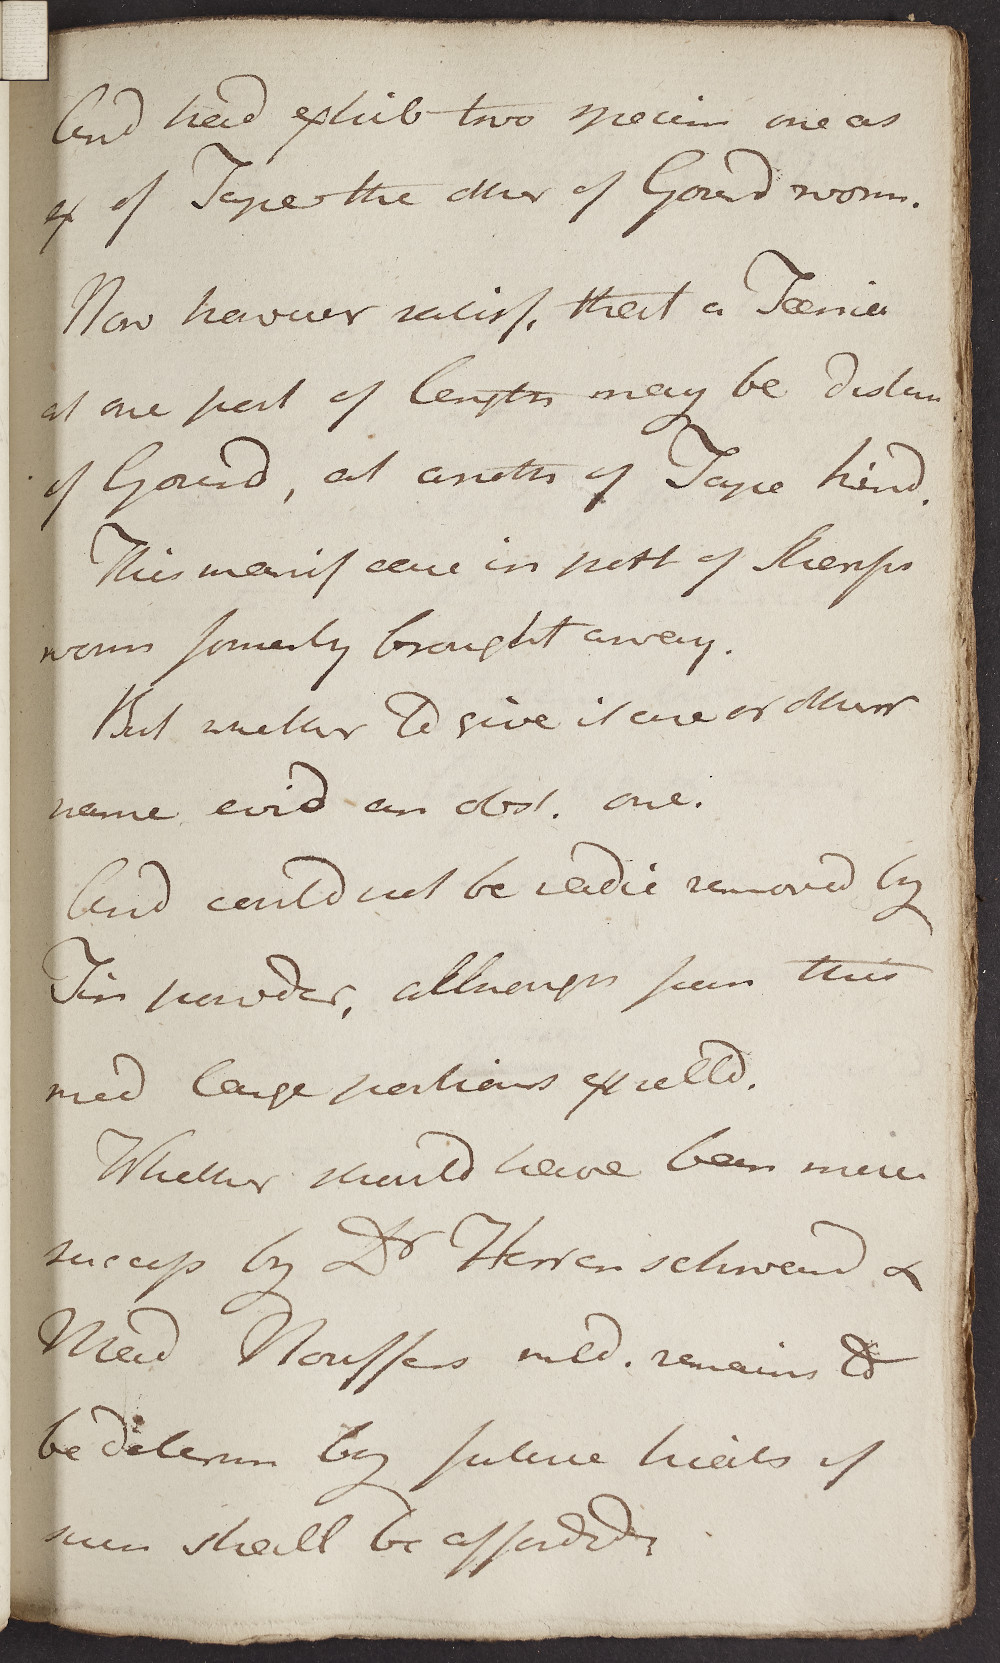 And had exhib two specim one as
ex of Tape the other of Gourd worm.
Now however satisf. that a Taenia
at one part of length may be distin
of Gourd, at anoth of Tape kind.
This manif case in patt of Sharps
worm formerly brought away.
But whether to give it one or other
name evid an obst. one.
And could not be readie removed by
Tin powder, although from this
med large portions expelld.
Whether should have been more
success by Dr Herrenschwand &
Mad Nouffers med. remains to
be determ by future trials if
such shall be afforded